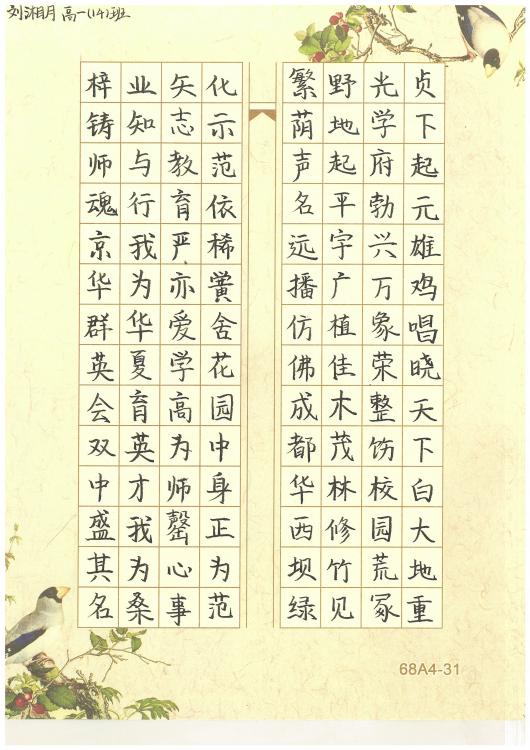 刘湘月 高一(14)班
贞下起元雄鸡唱晓天下白大地重
光学府勃兴万象荣整饬校园荒冢
野地起平宇广植佳木茂林修竹见
繁荫声名远播仿佛成都华西坝绿
化示范依稀黉舍花园中身正为范
矢志教育严亦爱学高为师罄心事
业知与行我为华夏育英才我为桑
梓铸师魂京华群英会双中盛其名
68A4-31